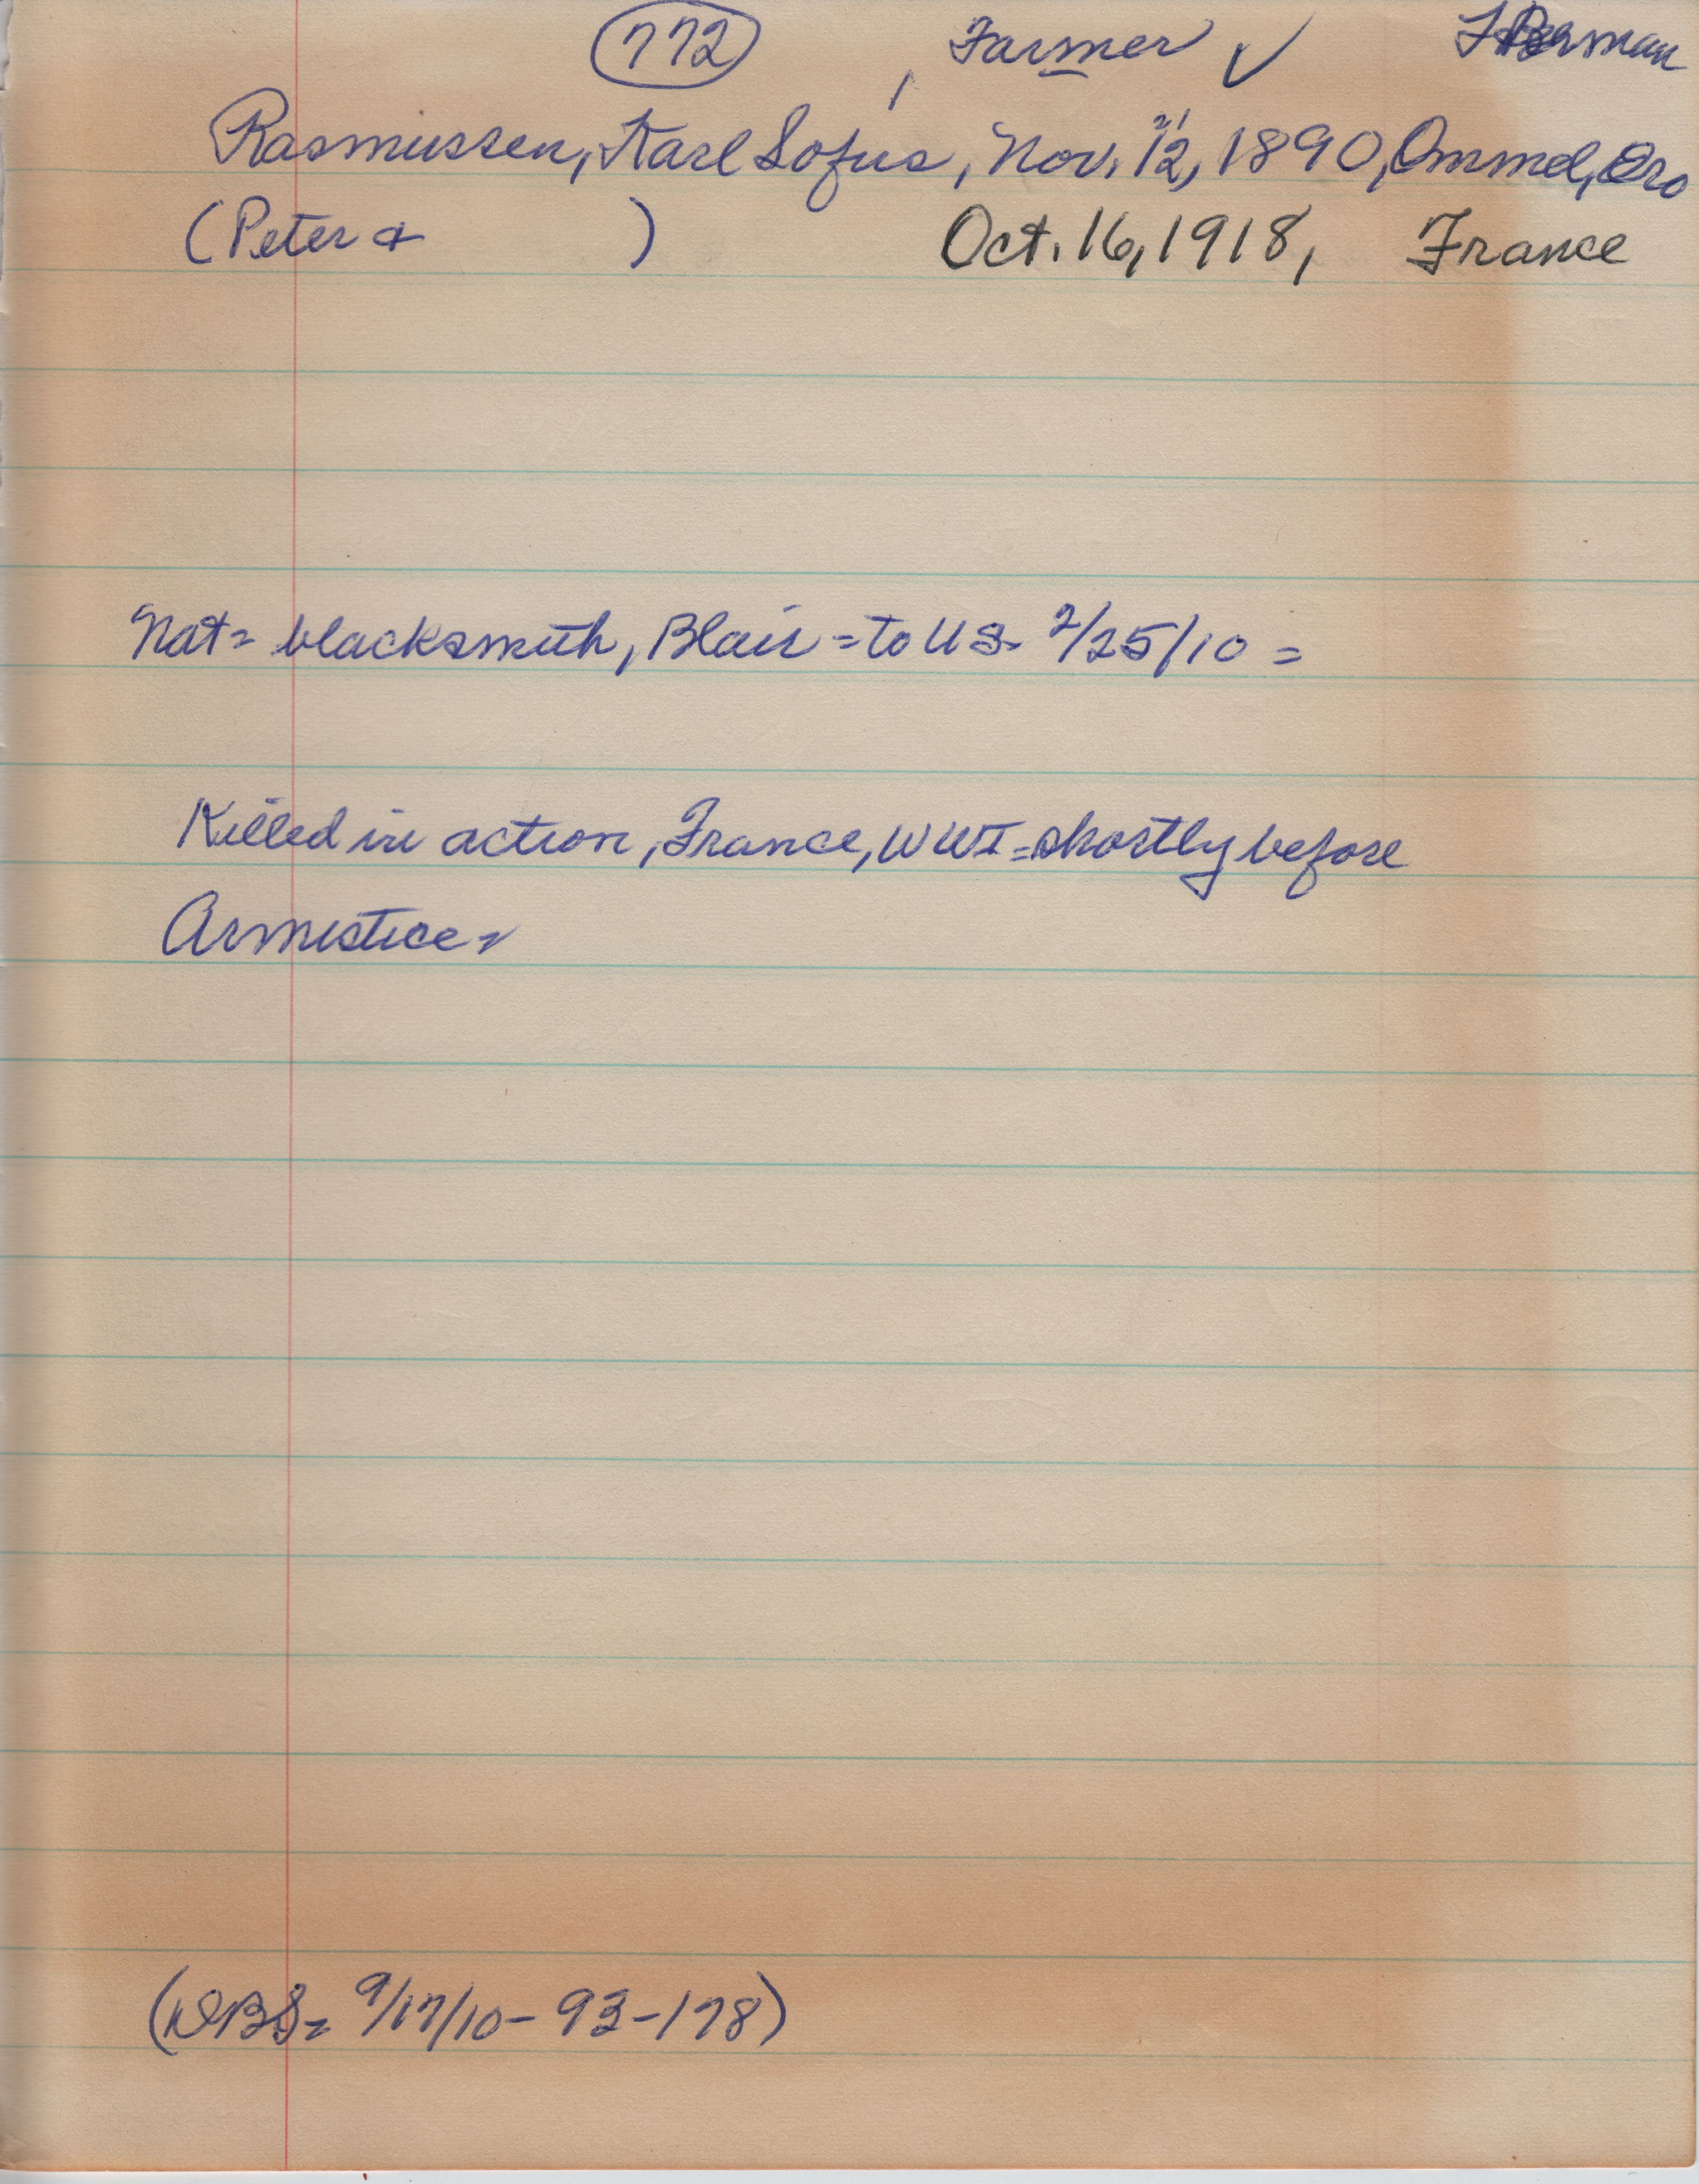 772 Farmer ✓
Rasmussen, Karl Sofus, Nov. 12, 1890, Ommel, Ero
(Peter & ) Oct. 16, 1918, France
Nat= blacksmith, Blair = to US= 2/25/10 =
Killed in action, France, WWI = shortly before
Armistice=
9/17/10 - 93-178)